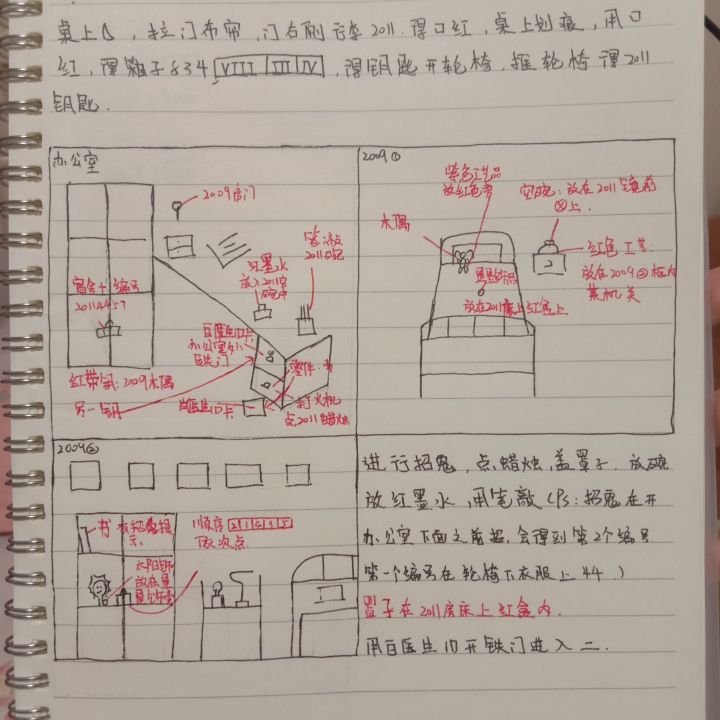 桌上△,拉门布帘,门右侧记录2011.得口红,桌上划痕,用口
红,得箱子834 VIII III IV,得钥匙开轮椅.推轮椅得2011
钥匙.
办公室
2009房门
红墨水
放入2011空
碗中
笔敲
2011碗
宿舍+编号
20114457
白医生ID卡
办公室外
铁门
红带钥:2009木偶
另一钥
医生ID卡
打火机
点2011蜡烛
2009①
紫色工艺品
木偶
空碗:放在2011镜前
⊗上.
红色工艺
放在2009②柜内
某机关
放在2011床上红盒上
2009②
书 有招鬼提
示.
顺序 2 1 4 3 5
依次点
太阳饰
放在星
进行招鬼,点蜡烛,盖罩子.放碗
放红墨水,用笔敲(PS:招鬼在开
办公室下面之前招,会得到第2个编号
第一个编号在轮椅下衣服上44)
罩子在2011房床上红盒内.
用白医生ID开铁门进入二.